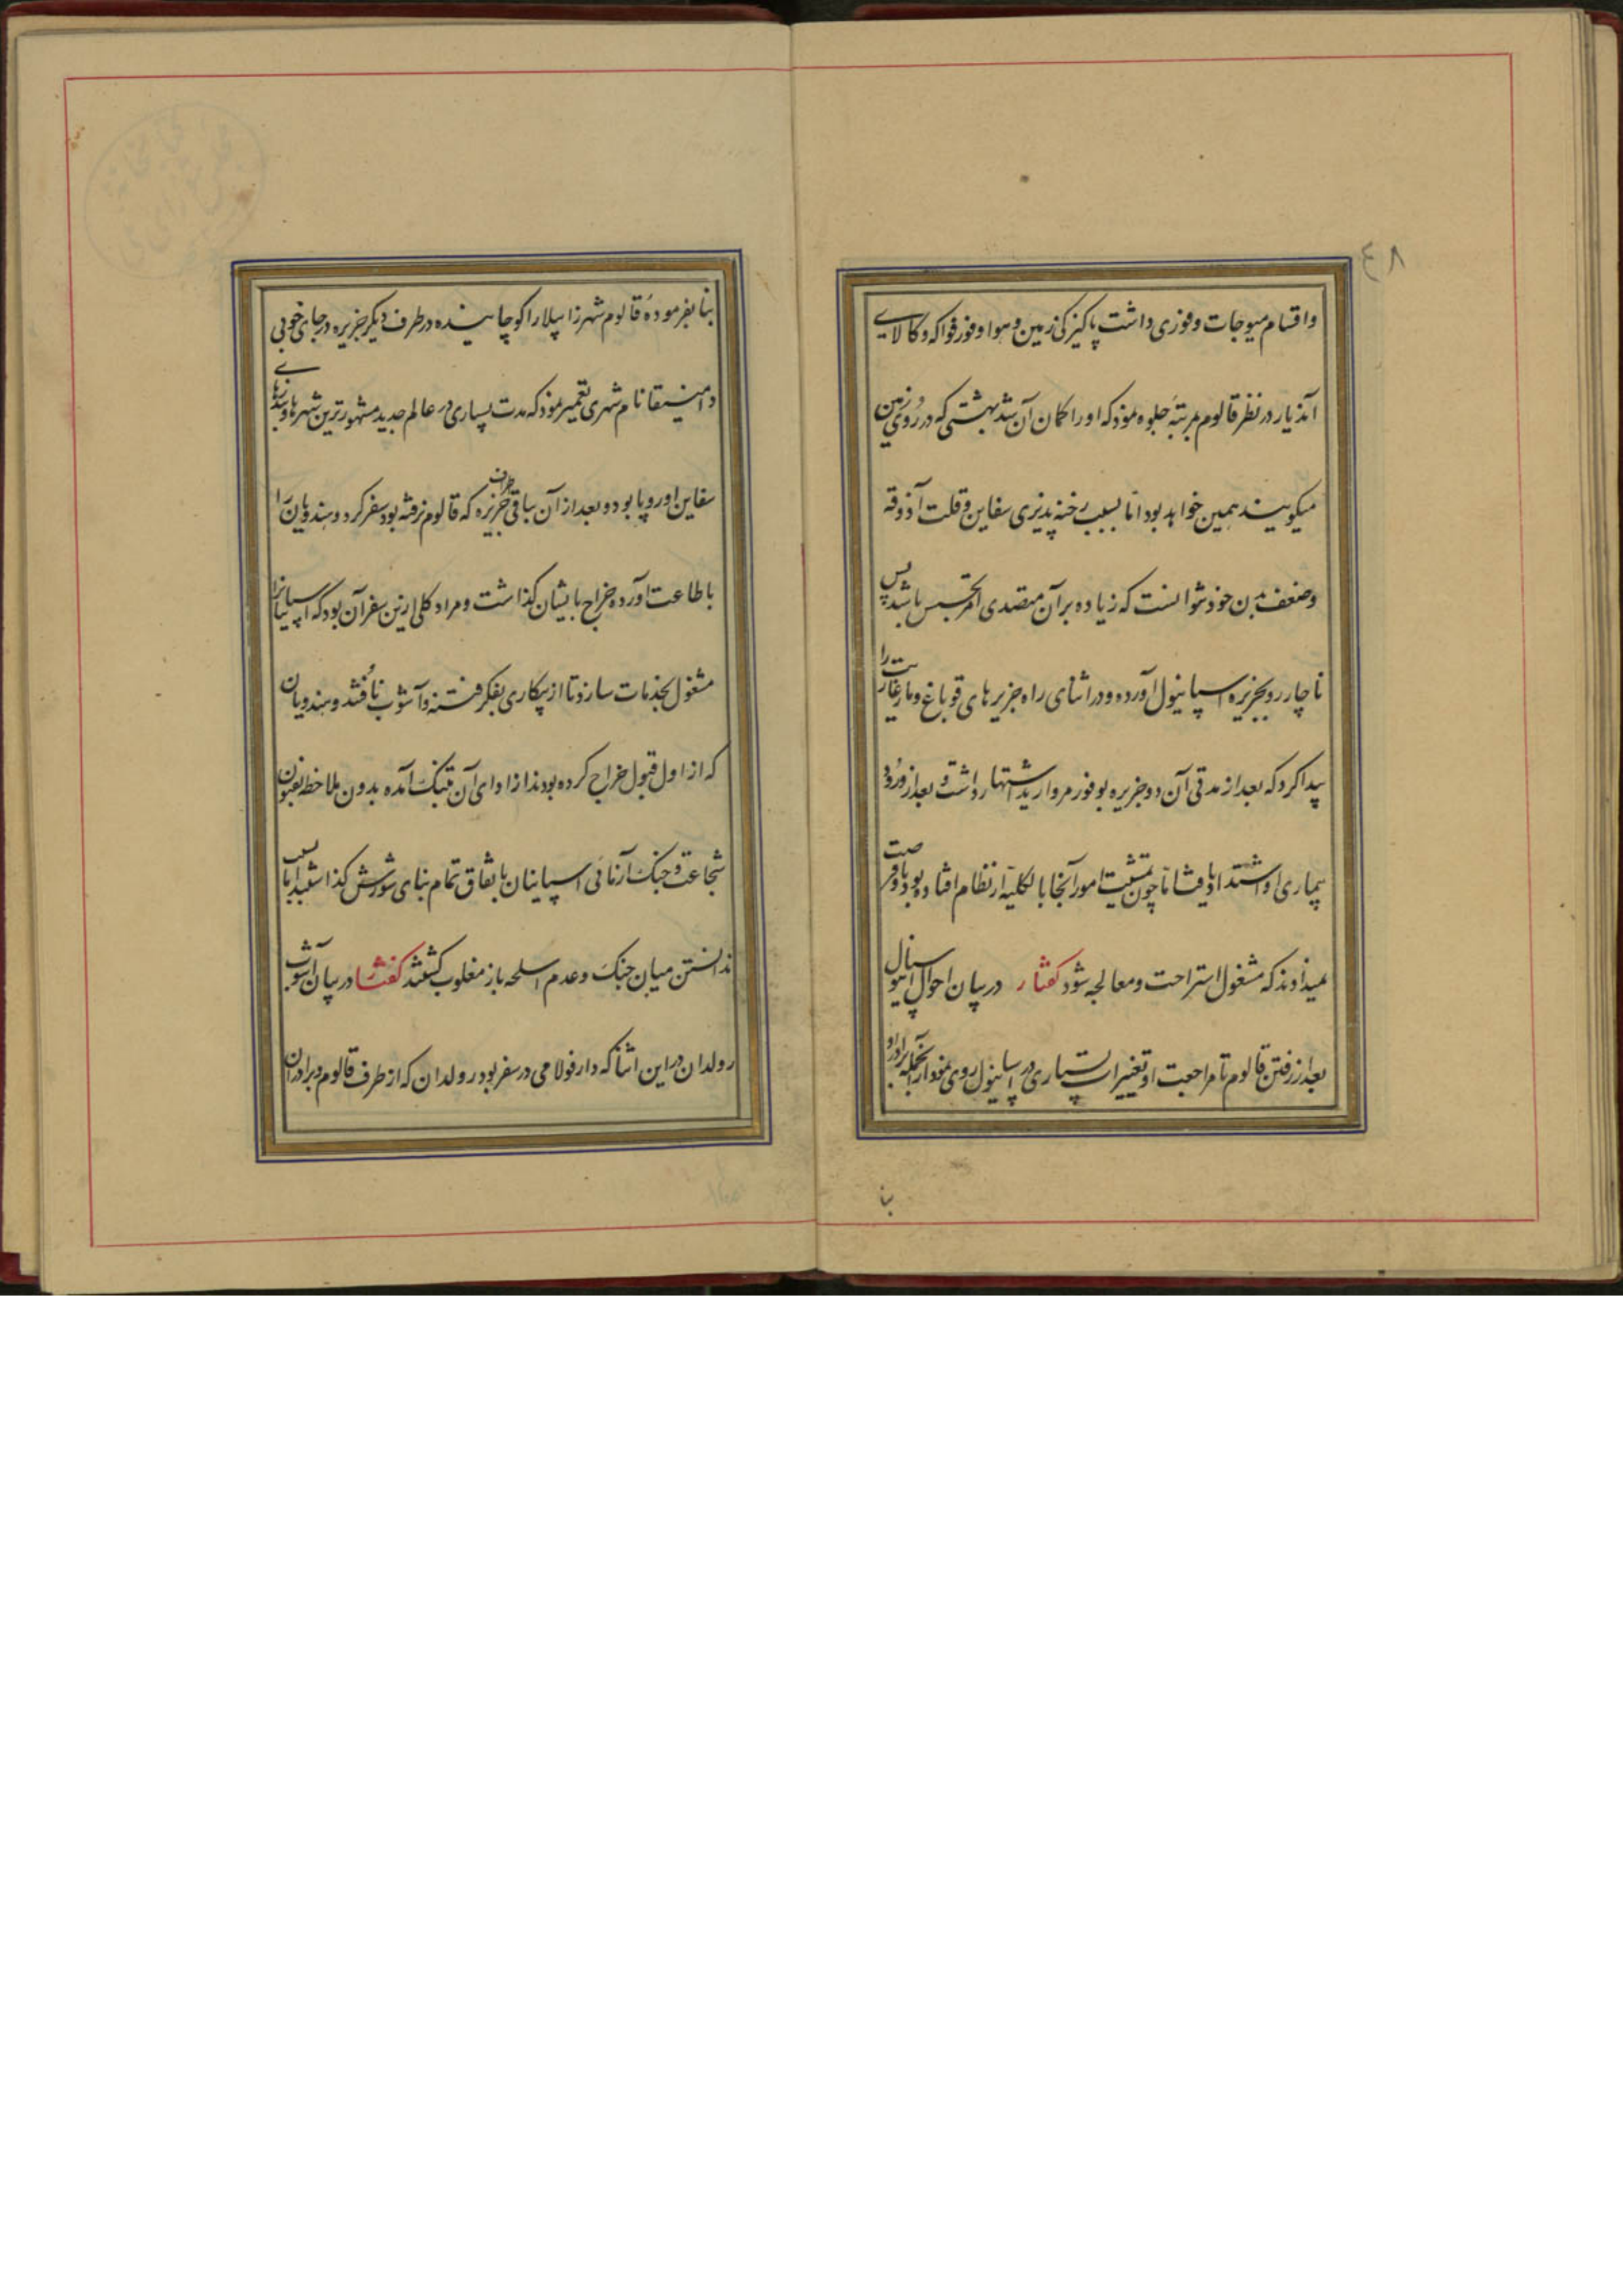 ٤٨
واقسام میوجات وفوری داشت پاکیزکی زمین وهوا وفور فواکه وکالای
آندیار در نظر قالوم بمرتبهٔ جلوه نمود که او را کمان آن شد بهشتی که در روی زمین
میکویند همین خواهد بود اما بسبب رخنه پذیری سفاین وقلت آذوقه
وضعف بدن خود نتوانست که زیاده بر آن متصدی امر تجسس باشد پس
ناچار رو بجزیره اسپانیول آورده ودر اثنای راه جزیرهای قوباغ ومارغاریت را
پیدا کرد که بعد از مدتی آن دو جزیره بوفور مروارید اشتهار داشت وبعد از ورود
بیماری او اشتداد یافت اما چون تمشیت امور آنجا بالکلیه از نظام افتاده بود باو فرصت
نمیدادند که مشغول استراحت ومعالجه شود کفتار در بیان احوال اسپانیول
بعد از رفتن قالوم تا مراجعت او تغییرات بسیاری در اسپانیول روی نمود از آنجمله برادر او
بنا
بنا بفرمودهٔ قالوم شهر زابیلا را کوچانیده در طرف دیکر جزیره در جای خوبی
دامنیقا نام شهری تعمیر نمود که مدت بسیاری در عالم جدید مشهورترین شهرها وبندرهای
سفاین اوروپا بود وبعد از آن بباقی جزیره که قالوم نرفته بود سفر کرد وهندویان را
باطاعت آورده خراج بایشان کذاشت ومراد کلی ازین سفر آن بود که اسپانیانرا
مشغول بخدمات سازد تا از بیکاری بفکر فتنه وآشوب نافتند وهندویان
که از اول قبول خراج کرده بودند از ادای آن بتنک آمده بدون ملاحظه
شجاعت وجنک آزمائی اسپانیان باتفاق تمام بنای شورش کذاشتند اما بسبب
ندانستن میان جنک وعدم اسلحه باز مغلوب کشتند کفتار در بیان آشوب
رولدان در این اثنا که دارفولامی در سفر بود رولدان که از طرف قالوم وبرادران